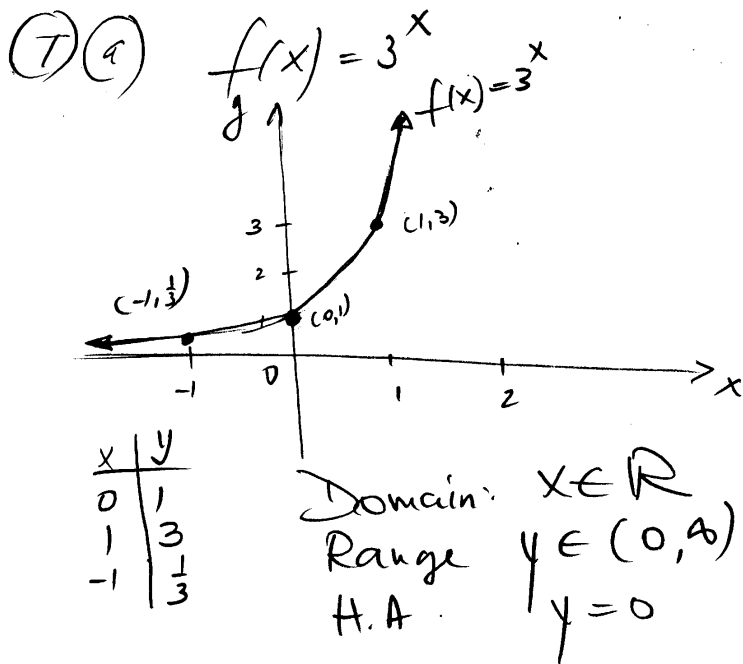 7 a f(x) = 3^x
y f(x) = 3^x
3 (1,3)
2
(-1, 1/3) (0,1)
-1 0 1 2 x
x | y
0 | 1
1 | 3
-1 | 1/3
Domain: x ∈ ℝ
Range y ∈ (0, ∞)
H.A. y = 0